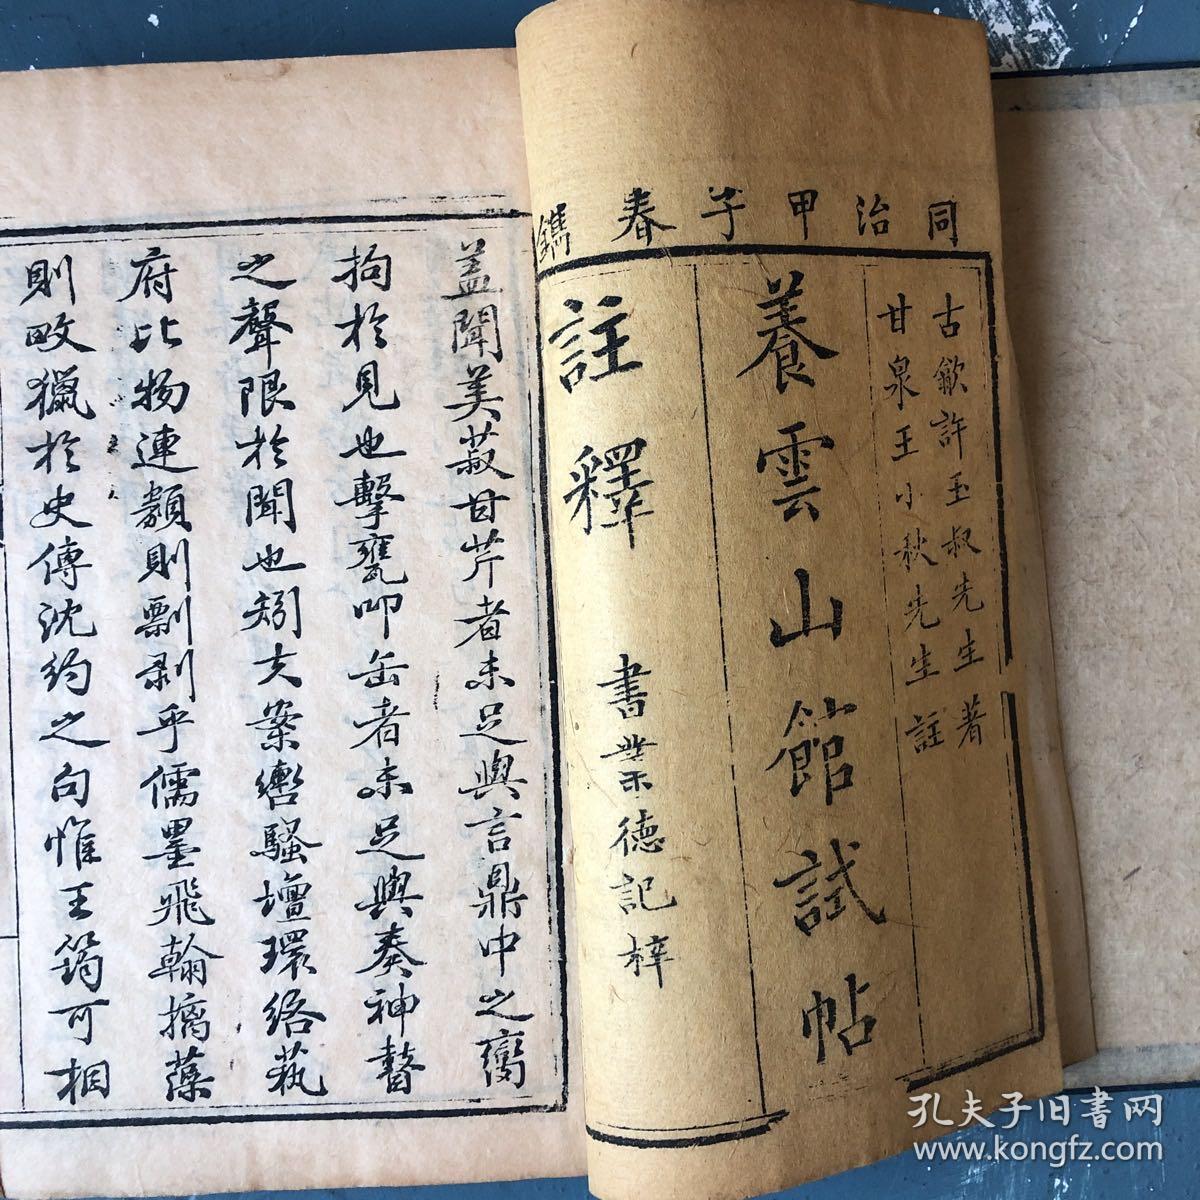 同治甲子春鐫
古歙許玉叔先生著
甘泉王小秋先生註
養雲山館試帖
註釋
書業德記梓
蓋聞美菽甘芹者未足與言鼎中之臠
拘於見也擊甕叩缶者未足與奏神瞽
之聲限於聞也矧夫案轡騷壇環絡蓺
府比物連類則剽剥乎儒墨飛翰摛藻
則畋獵於史傳沈約之句惟王筠可相
孔夫子旧书网
www.kongfz.com